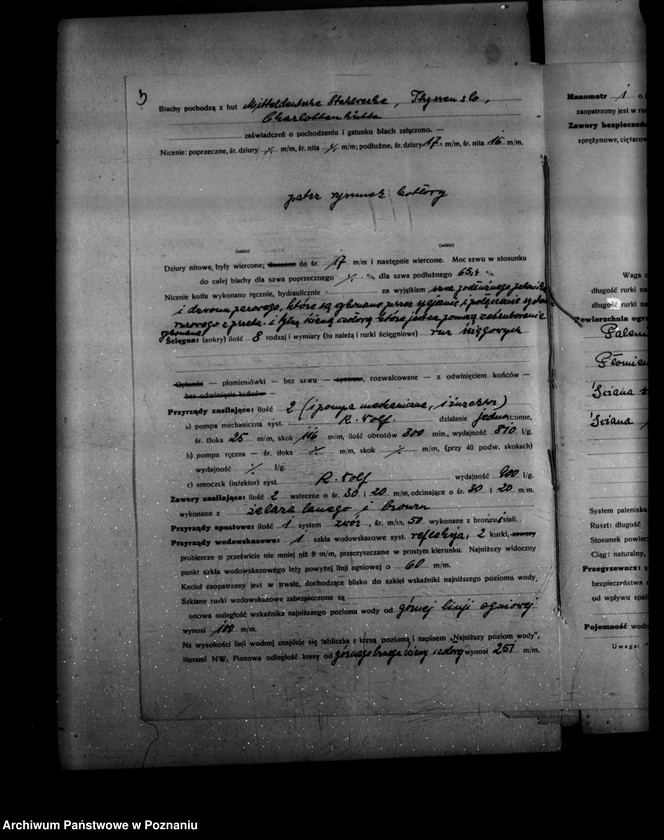 3
Blachy pochodzą z hut Mitteldeutsche Stahlwerke, Thyssen & Co,
Charlottenhütte
zaświadczeń o pochodzeniu i gatunku blach załączono. —
Nicenie: poprzeczne, śr. dziury m/m, śr. nita m/m; podłużne, śr. dziury 17 m/m, śr. nita 16 m/m.
patrz rysunek
(szkic) (szkic)
Dziury nitowe, były wiercone; tłoczone do śr. 17 m/m i następnie wiercone. Moc szwu w stosunku
do całej blachy dla szwa poprzecznego % dla szwa podłużnego 63,4 %
Nicenie kotła wykonano ręcznie, hydraulicznie za wyjątkiem szwa podłużnego
i parowego, które są wykonane przez
rurowego z przednią i tylną ścianą
wykonane
Ścięgna: (ankry) ilość 8 rodzaj i wymiary (tu należą i rurki ścięgniowe) rur ściągowych
Opłomki — płomieniówki — bez szwu — spawane, rozwalcowane — z odwinięciem końców —
bez odwinięcia końców —
Przyrządy zasilające: ilość 2 (1 pompa mechaniczna, 1 inżektor)
a) pompa mechaniczna syst. R. Wolf. działanie jednostronne,
śr. tłoka 25 m/m, skok 116 m/m, ilość obrotów 300 min., wydajność 810 l/g.
b) pompa ręczna — śr. tłoka m/m, skok m/m, (przy 40 podw. skokach)
wydajność l/g.
c) smoczek (infektor) syst. R. Wolf wydajność 900 l/g.
Zawory zasilające: ilość 2 wsteczne o śr. 30 i 20 m/m, odcinające o śr. 30 i 20 m/m.
wykonane z żelaza lanego i bronzu
Przyrządy spustowe: ilość 1 system zwór, śr. m/m. 50 wykonane z bronzu i stali.
Przyrządy wodowskazowe: 1 szkła wodowskazowe syst. refleksja, 2 kurki, zawory
probiercze o prześwicie nie mniej niż 8 m/m, przeczyszczane w prostym kierunku. Najniższy widoczny
punkt szkła wodowskazowego leży powyżej linji ogniowej o 60 m/m.
Kocioł zaopatrzony jest w trwałe, dochodzące blisko do szkieł wskaźniki najniższego poziomu wody
Szklane rurki wodowskazowe zabezpieczone są
onowa odległość wskaźnika najniższego poziomu wody od górnej linji ogniowej
wynosi 100 m/m.
Na wysokości linji wodnej znajduje się tabliczka z kresą poziomą i napisem „Najniższy poziom wody",
literami NW. Pionowa odległość kresy od górnego brzegu ściany wynosi 251 m/m.
Manometr 1 o
zaopatrzony jest w ru
Zawory bezpieczeń
sprężynowe, ciężaro
Waga c
długość rurki na
długość rurki na
Powierzchnia ogr
Paleni
Płomien
Ściana
Ściana
System paleniska
Ruszt: długość
Stosunek powier
Ciąg: naturalny,
Przegrzewacz: s
bezpieczeństwa
od wpływu spal
Pojemność wodn
Uwaga:
Archiwum Państwowe w Poznaniu